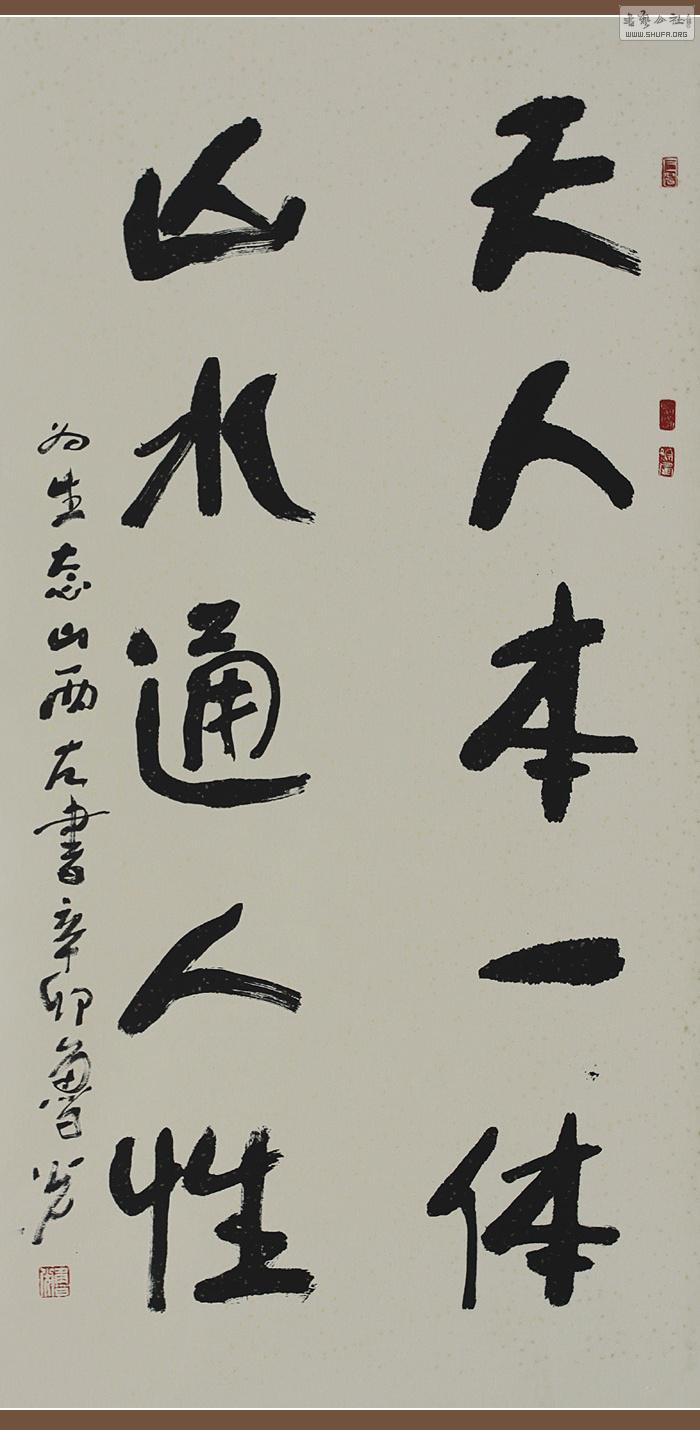 天人本一体
山水通人性
为生态山西左书辛卯鲁光
书艺公社
WWW.SHUFA.ORG